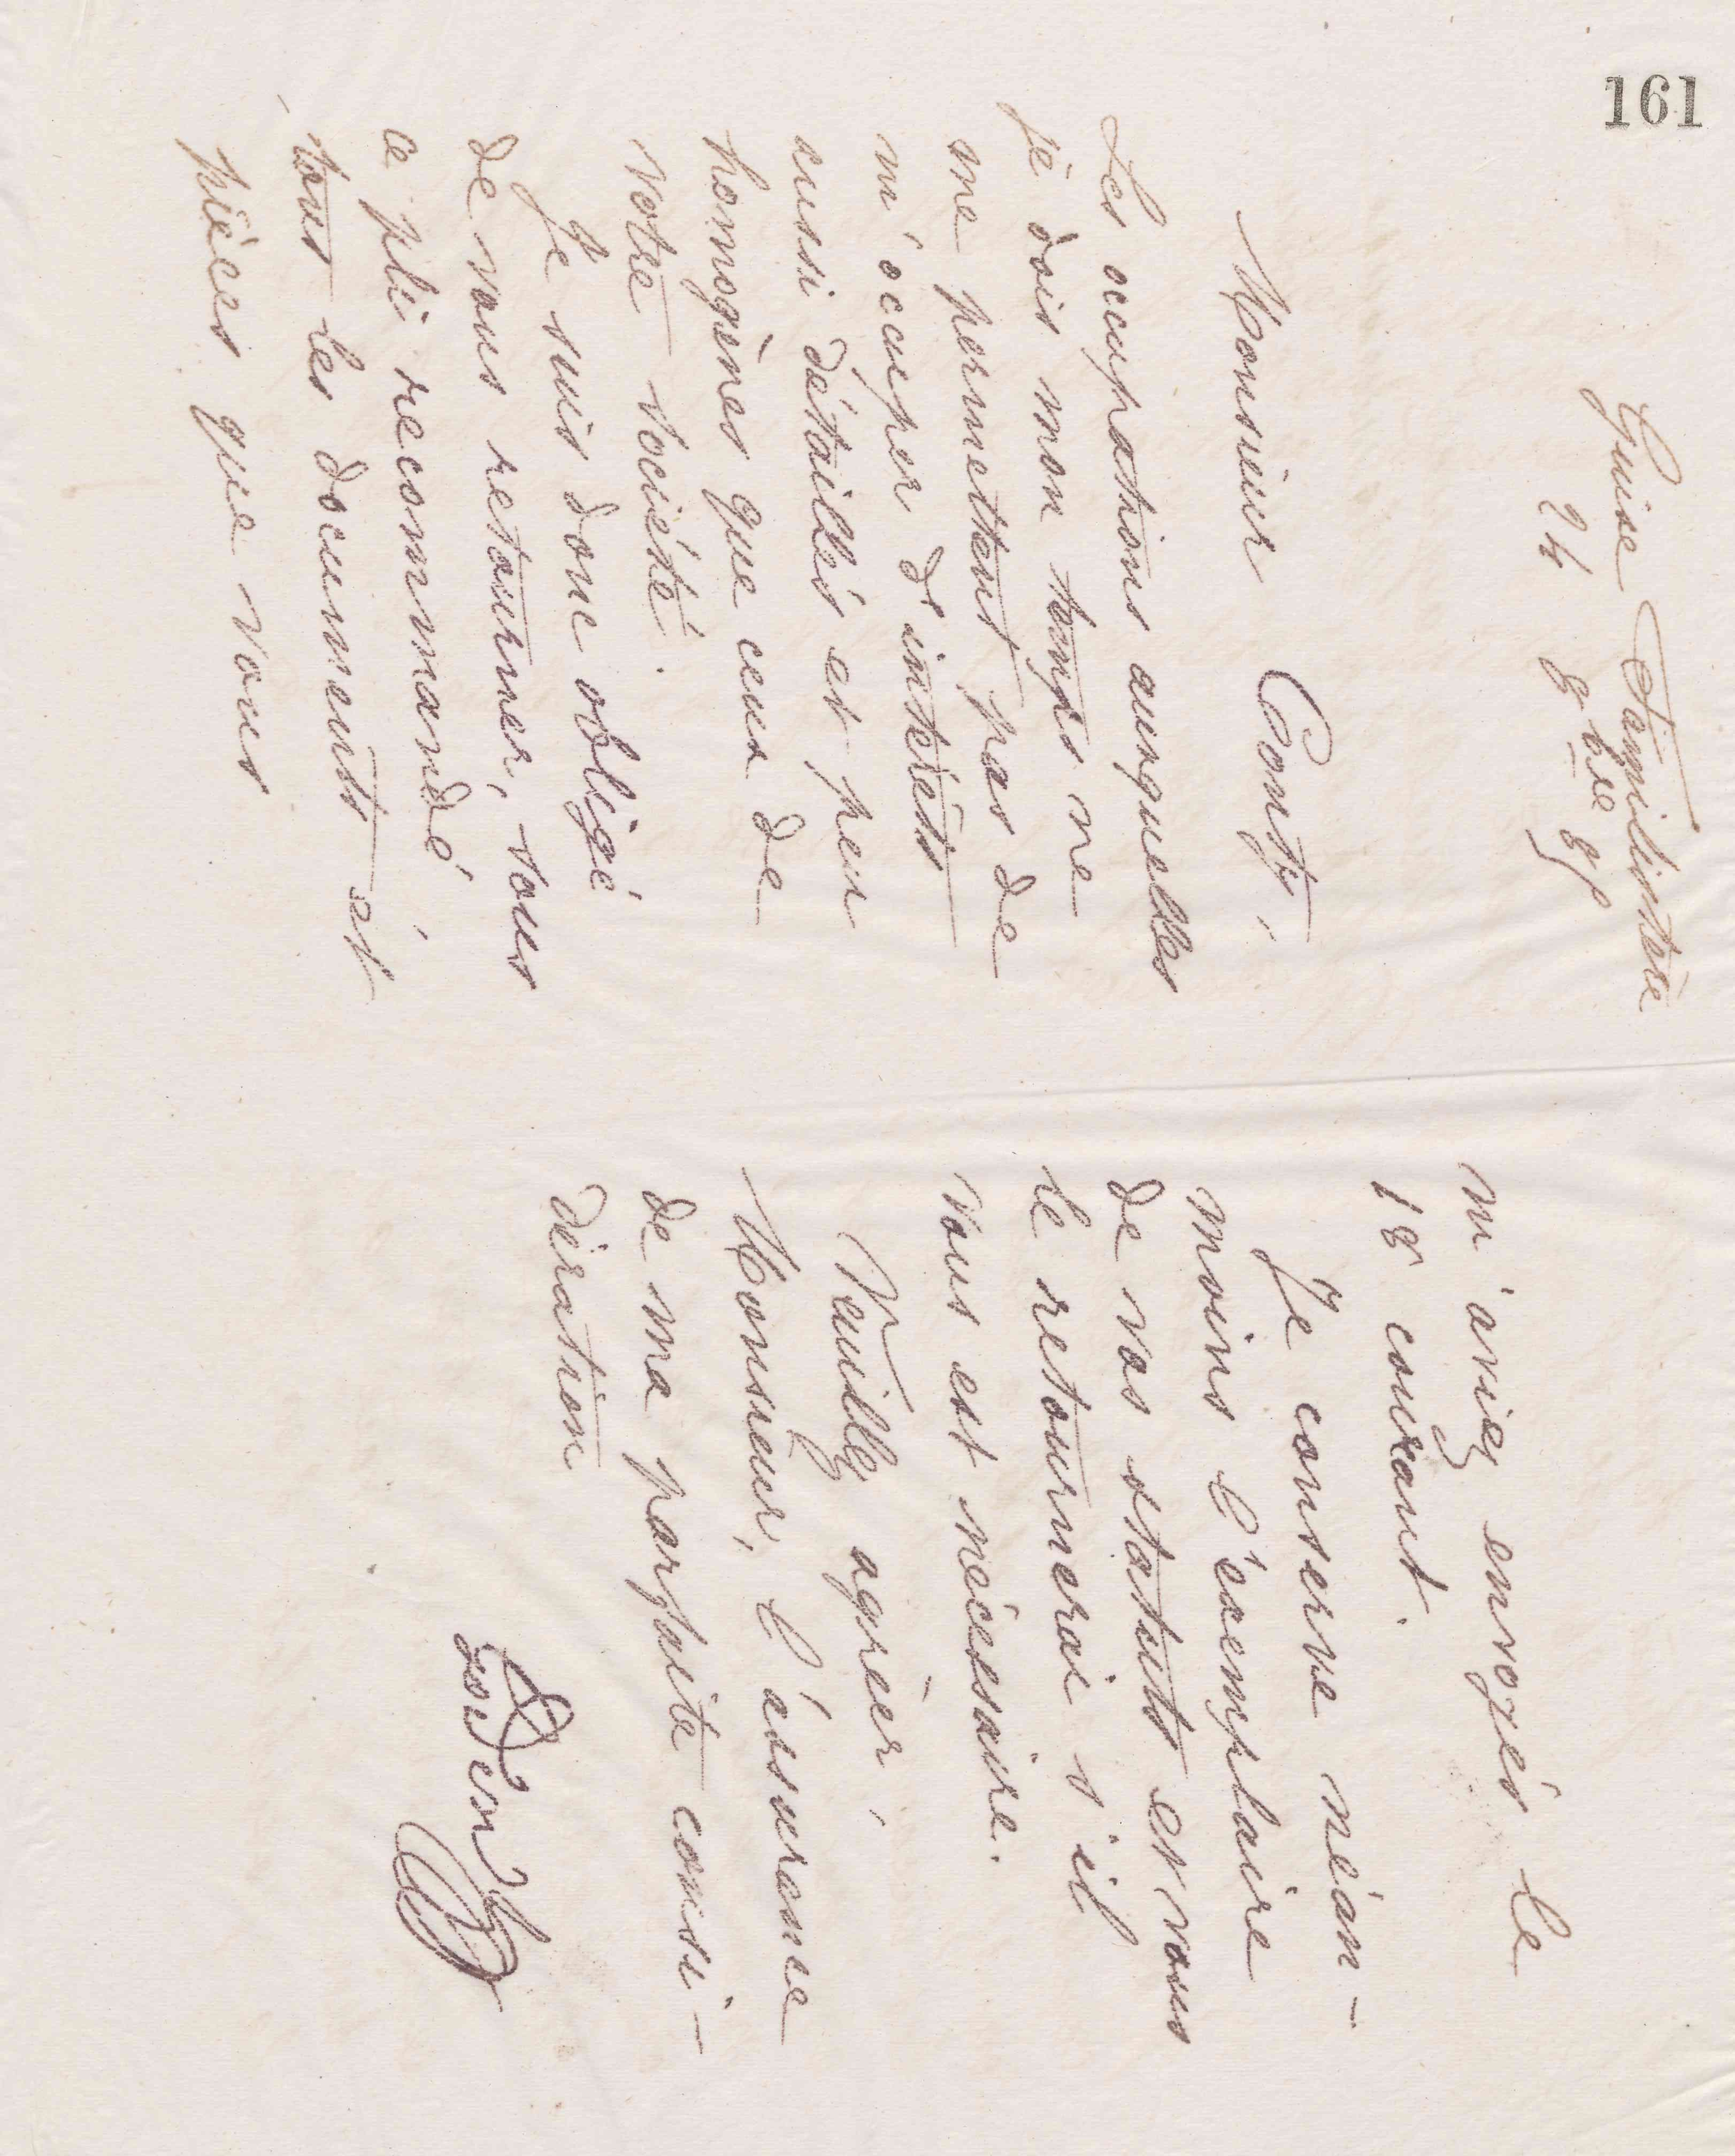 161
Guise Familistère
24 8bre 87
Monsieur Conty,
Les occupations auxquelles
je dois mon temps ne
me permettent pas de
m'occuper d'intérêts
aussi détaillés et peu
homogènes que ceux de
votre société.
Je suis donc obligé
de vous retourner, sous
ce pli recommandé,
tous les documents et
pièces que vous
m'aviez envoyés le
18 courant.
Je conserve néan-
moins l'exemplaire
de vos statuts et vous
le retournerai s'il
vous est nécessaire.
Veuillez agréer,
Monsieur, l'assurance
de ma parfaite consi-
dération
Godin